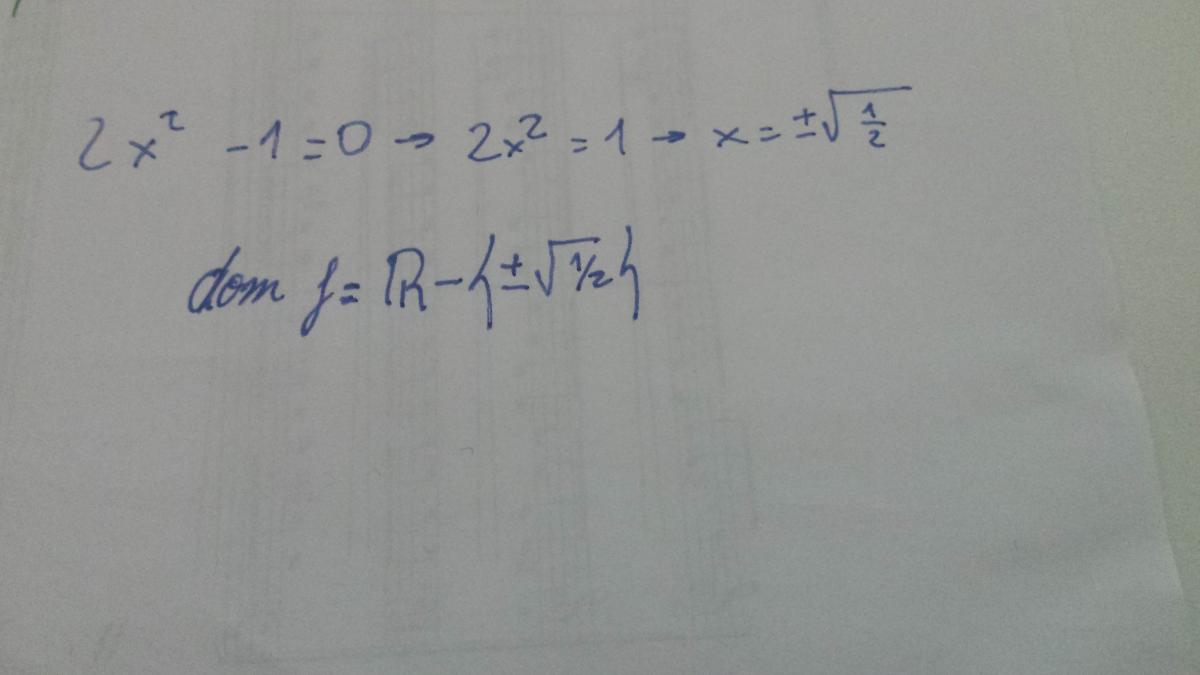 2x² -1=0 → 2x² = 1 → x = ±√(1/2)
dom f = ℝ-{±√1/2}